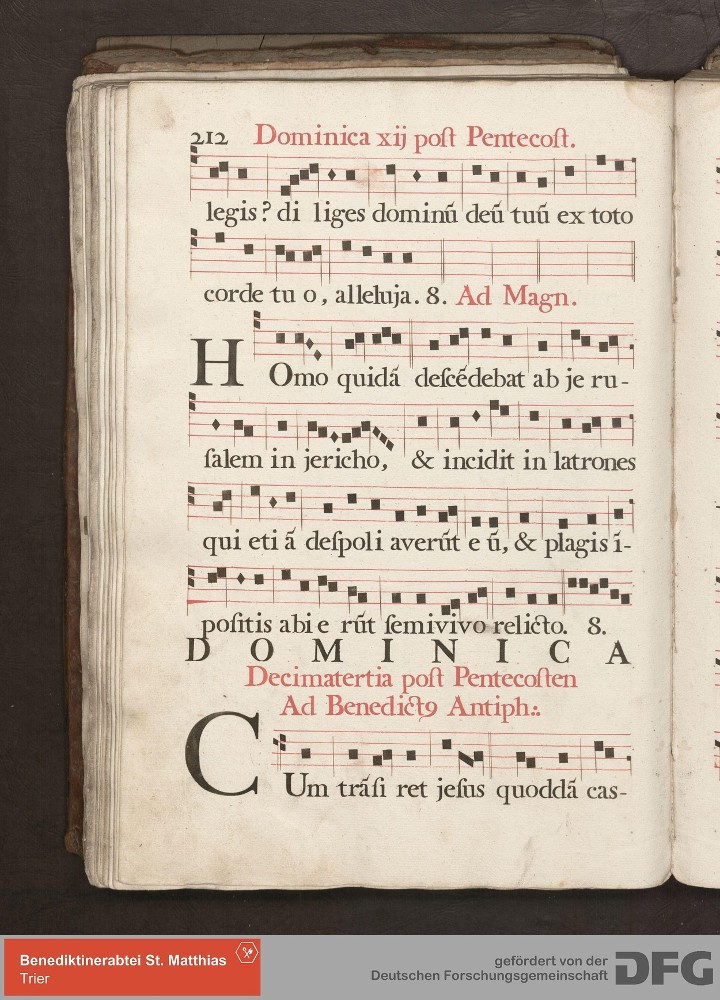 212 Dominica xij poſt Pentecoſt.
legis? di liges dominū deū tuū ex toto
corde tu o, alleluja. 8. Ad Magn.
HOmo quidā deſcēdebat ab je ru-
ſalem in jericho, & incidit in latrones
qui eti ā deſpoli averūt e ū, & plagis ī-
poſitis abi e rūt ſemivivo relicto. 8.
DOMINICA
Decimatertia poſt Pentecoſten
Ad Benedict9 Antiph:.
CUm trāſi ret jeſus quoddā cas-
Benediktinerabtei St. Matthias
Trier
gefördert von der
Deutschen Forschungsgemeinschaft
DFG